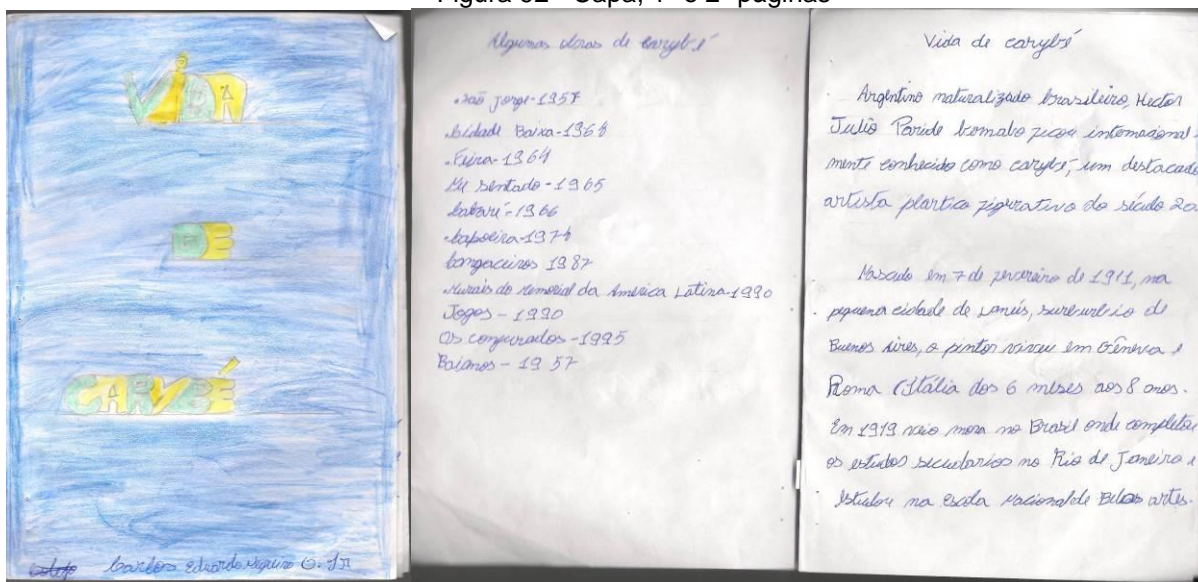 Figura 62 - Capa, 1ª e 2ª páginas
VIDA
DE
CARYBÉ
Carlos Eduardo O. Jr
Algumas obras de carybé
São Jorge-1957
Cidade Baixa-1964
Feira-1964
Eu sentado-1965
1966
capoeira-1974
cangaceiros 1987
Murais do Memorial da América Latina-1990
Jogos - 1990
Os conjurados-1995
Baianos - 1957
Vida de carybé
Argentino naturalizado brasileiro, Hector
Julio Paride bernabo ficou internacional-
mente conhecido como carybé, um destacado
artista plastico figurativo do século 20.
Nascido em 7 de fevereiro de 1911, na
pequena cidade de Lanús, suburbio de
Buenos Aires, o pintor viveu em Gênova e
Roma (Itália dos 6 meses aos 8 anos.
Em 1919 veio mora no Brasil onde completou
os estudos secudarios no Rio de Janeiro e
estudou na escola nacional de Belas artes.